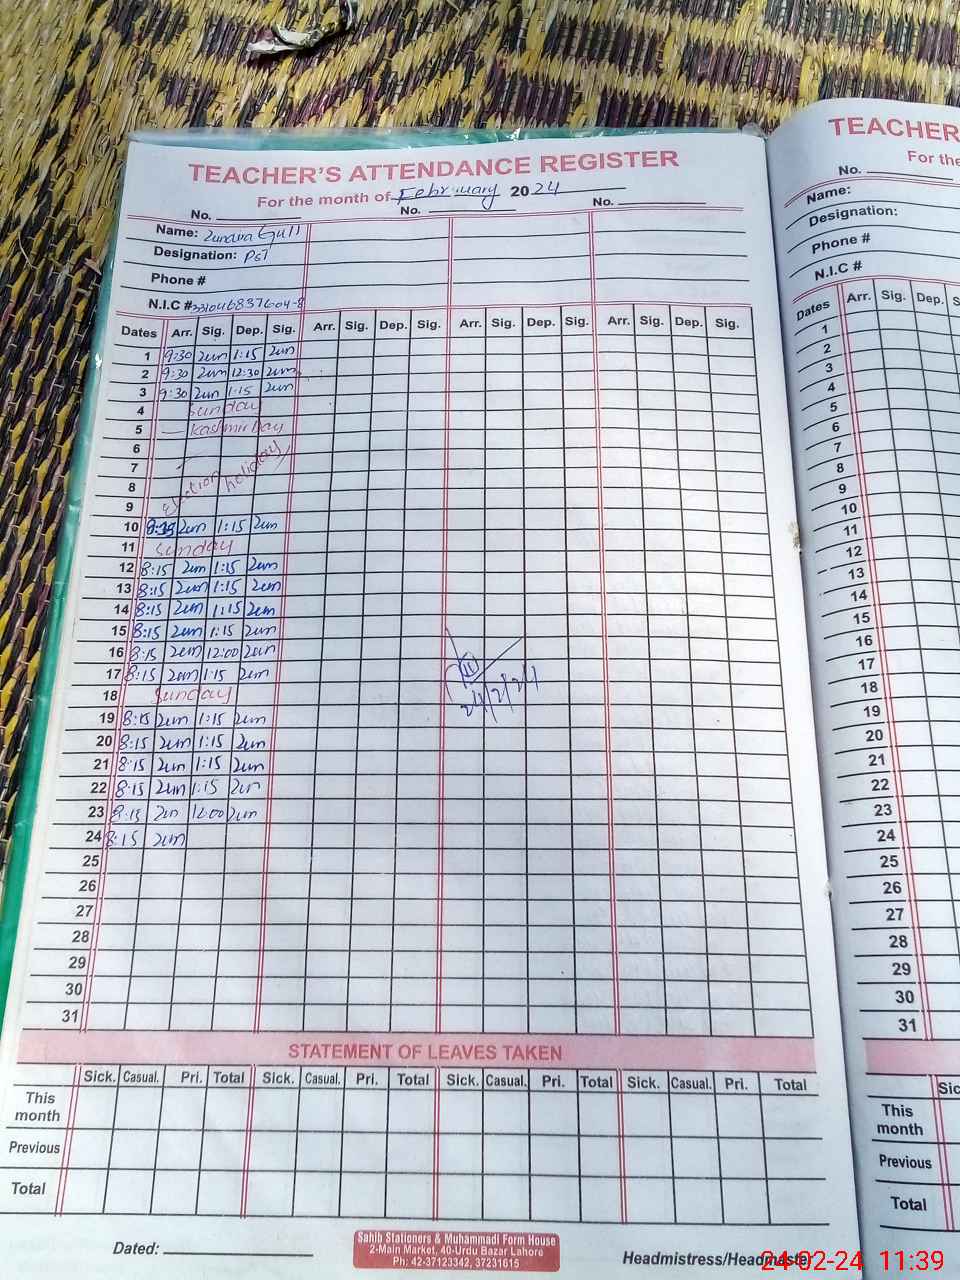 TEACHER'S ATTENDANCE REGISTER
For the month of February 2024
No. No. No.
Name: Zunaira Gull
Designation: PST
Phone #
N.I.C # 331046837604-8
Dates Arr. Sig. Dep. Sig. Arr. Sig. Dep. Sig. Arr. Sig. Dep. Sig. Arr. Sig. Dep. Sig.
1 9:30 zun 1:15 zun
2 9:30 zun 12:30 zun
3 9:30 zun 1:15 zun
4 Sunday
5 Kashmir Day
6
7
8 Election holiday
9
10 8:15 zun 1:15 zun
11 Sunday
12 8:15 zun 1:15 zun
13 8:15 zun 1:15 zun
14 8:15 zun 1:15 zun
15 8:15 zun 1:15 zun
16 8:15 zun 12:00 zun
17 8:15 zun 1:15 zun
18 Sunday
24/2/24
19 8:15 zun 1:15 zun
20 8:15 zun 1:15 zun
21 8:15 zun 1:15 zun
22 8:15 zun 1:15 zun
23 8:15 zun 12:00 zun
24 8:15 zun
25
26
27
28
29
30
31
STATEMENT OF LEAVES TAKEN
Sick. Casual. Pri. Total Sick. Casual. Pri. Total Sick. Casual. Pri. Total Sick. Casual. Pri. Total
This month
Previous
Total
Dated:
Sahib Stationers & Muhammadi Form House
2-Main Market, 40-Urdu Bazar Lahore
Ph: 42-37123342, 37231615
Headmistress/Headmaster
TEACHER
For the
No.
Name:
Designation:
Phone #
N.I.C #
Dates Arr. Sig. Dep. S
1
2
3
4
5
6
7
8
9
10
11
12
13
14
15
16
17
18
19
20
21
22
23
24
25
26
27
28
29
30
31
Sic
This month
Previous
Total
24-02-24 11:39